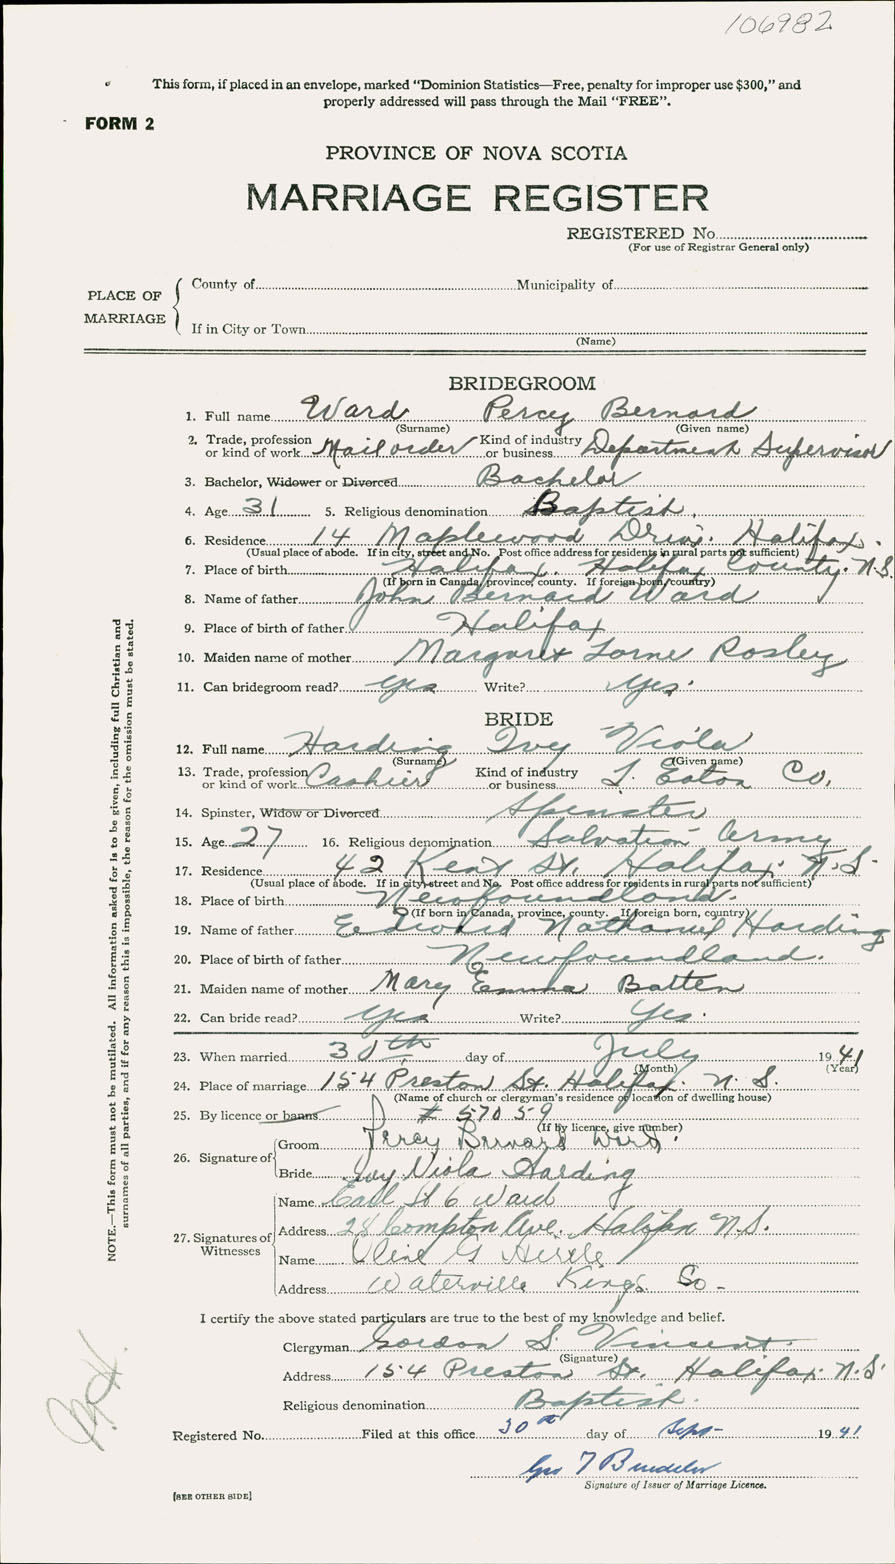 106982
This form, if placed in an envelope, marked "Dominion Statistics—Free, penalty for improper use $300," and
properly addressed will pass through the Mail "FREE".
FORM 2
PROVINCE OF NOVA SCOTIA
MARRIAGE REGISTER
REGISTERED No.
(For use of Registrar General only)
PLACE OF MARRIAGE
County of Municipality of
If in City or Town
(Name)
BRIDEGROOM
1. Full name Ward Percy Bernard
(Surname) (Given name)
2. Trade, profession or kind of work Mail order Kind of industry or business Department Supervisor
3. Bachelor, Widower or Divorced Bachelor
4. Age 31 5. Religious denomination Baptist.
6. Residence 14 Maplewood Drive. Halifax.
(Usual place of abode. If in city, street and No. Post office address for residents in rural parts not sufficient)
7. Place of birth Halifax. Halifax County. N.S.
(If born in Canada, province, county. If foreign born, country)
8. Name of father John Bernard Ward
9. Place of birth of father Halifax
10. Maiden name of mother Margaret Lorne Rosley
11. Can bridegroom read? yes Write? yes.
BRIDE
12. Full name Harding Ivy Viola
(Surname) (Given name)
13. Trade, profession or kind of work Cashier Kind of industry or business T. Eaton Co.
14. Spinster, Widow or Divorced Spinster
15. Age 27 16. Religious denomination Salvation Army
17. Residence 42 Kent St. Halifax. N.S.
(Usual place of abode. If in city, street and No. Post office address for residents in rural parts not sufficient)
18. Place of birth Newfoundland.
(If born in Canada, province, county. If foreign born, country)
19. Name of father Edward Nathaniel Harding
20. Place of birth of father Newfoundland.
21. Maiden name of mother Mary Emma Batten
22. Can bride read? yes Write? Yes.
23. When married 30th day of July 1941
(Month) (Year)
24. Place of marriage 154 Preston St. Halifax. N.S.
(Name of church or clergyman's residence or location of dwelling house)
25. By licence or banns # 57059
(If by licence, give number)
26. Signature of Groom Percy Bernard Ward.
Bride Ivy Viola Harding
27. Signatures of Witnesses
Name Earl Ward
Address 28 Compton Ave. Halifax N.S.
Name G
Address Waterville Kings Co-
I certify the above stated particulars are true to the best of my knowledge and belief.
Clergyman Gordon S. Vincent.
(Signature)
Address 154 Preston St. Halifax. N.S.
Religious denomination Baptist.
Registered No. Filed at this office 30th day of Sept- 1941
Geo T
Signature of Issuer of Marriage Licence.
[SEE OTHER SIDE]
NOTE.—This form must not be mutilated. All information asked for is to be given, including full Christian and
surnames of all parties, and if for any reason this is impossible, the reason for the omission must be stated.